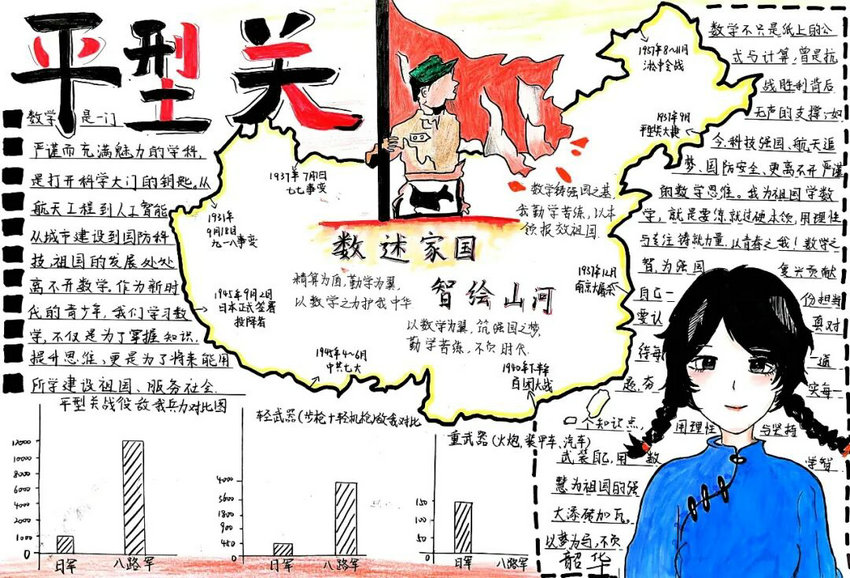 平型关
数学 是一门
严谨而充满魅力的学科,
是打开科学大门的钥匙。从
航天工程到人工智能
从城市建设到国防科
技,祖国的发展处处
离不开数学,作为新时
代的青少年,我们学习数
学,不仅是为了掌握知识、
提升思维、更是为了将来能用
所学建设祖国、服务社会
1937年7月7日
七七事变
1931年
9月18日
九一八事变
1945年9月2日
日本正式签署
投降书
1945年4~6月
中共七大
1937年8~11月
淞沪会战
1937年9月
平型关大捷
1937年12月
南京大屠杀
1940年下半年
百团大战
数学铸强国之基
我勤学苦练,以本
领报效祖国
数述家国
智绘山河
精算为盾,勤学为翼,
以数学之力护我中华
以数学为翼,筑强国之梦,
勤学苦练,不负时代
数学不只是纸上的公
式与计算,曾是抗
战胜利背后
无声的支撑;如
今,科技强国、航天追
梦、国防安全、更离不开严谨
的数学思维。我为祖国学数
学,就是要练就过硬本领,用理性
与专注铸就力量,以青春之我!数学之
智,为强国 复兴贡献
自己一 份担当
要认 真对
待每 一道
题,夯 实每一
个知识点, 用理性 与坚持
武装自己,用 数 学智
慧为祖国的强
大添砖加瓦。
以梦为马,不负
韶华
平型关战役敌我兵力对比图
12000
1000
0
日军 八路军
轻武器(步枪+轻机枪)敌我对比
4000
900
450
0
日军 八路军
重武器(火炮,装甲车,汽车)
150
100
50
0
日军 八路军